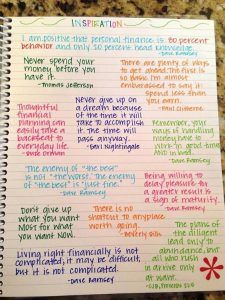 INSPIRATION
I am positive that personal finance is 80 percent
behavior and only 20 percent head knowledge.
-Dave Ramsey
Never spend your
money before you
have it.
-Thomas Jefferson
There are plenty of ways
to get ahead. The first is
so basic I'm almost
embarrassed to say it:
spend less than
you earn.
-Paul Clitheroe
Thoughtful
financial
planning can
easily take a
backseat to
everyday life.
-Suze Orman
Never give up on
a dream because
of the time
it will take to
accomplish
it. The time will
pass anyway.
-Earl Nightingale
Remember, your
ways of handling
money have to
work in good times
and in bad.
-Dave Ramsey
The enemy of "the best"
is not "the worst." The enemy
of "the best" is "just fine."
-Dave Ramsey
Being willing to
delay pleasure for
a greater result is
a sign of maturity.
-Dave Ramsey
Don't give up
what you want
most for what
you want now.
-Dave Ramsey
There is no
shortcut to anyplace
worth going.
-Beverly Sills
The plans of
the diligent
lead only to
abundance, but
all who rush
in arrive only
at want.
Proverbs
Living right financially is not
complicated; it may be difficult,
but it is not complicated.
-Dave Ramsey